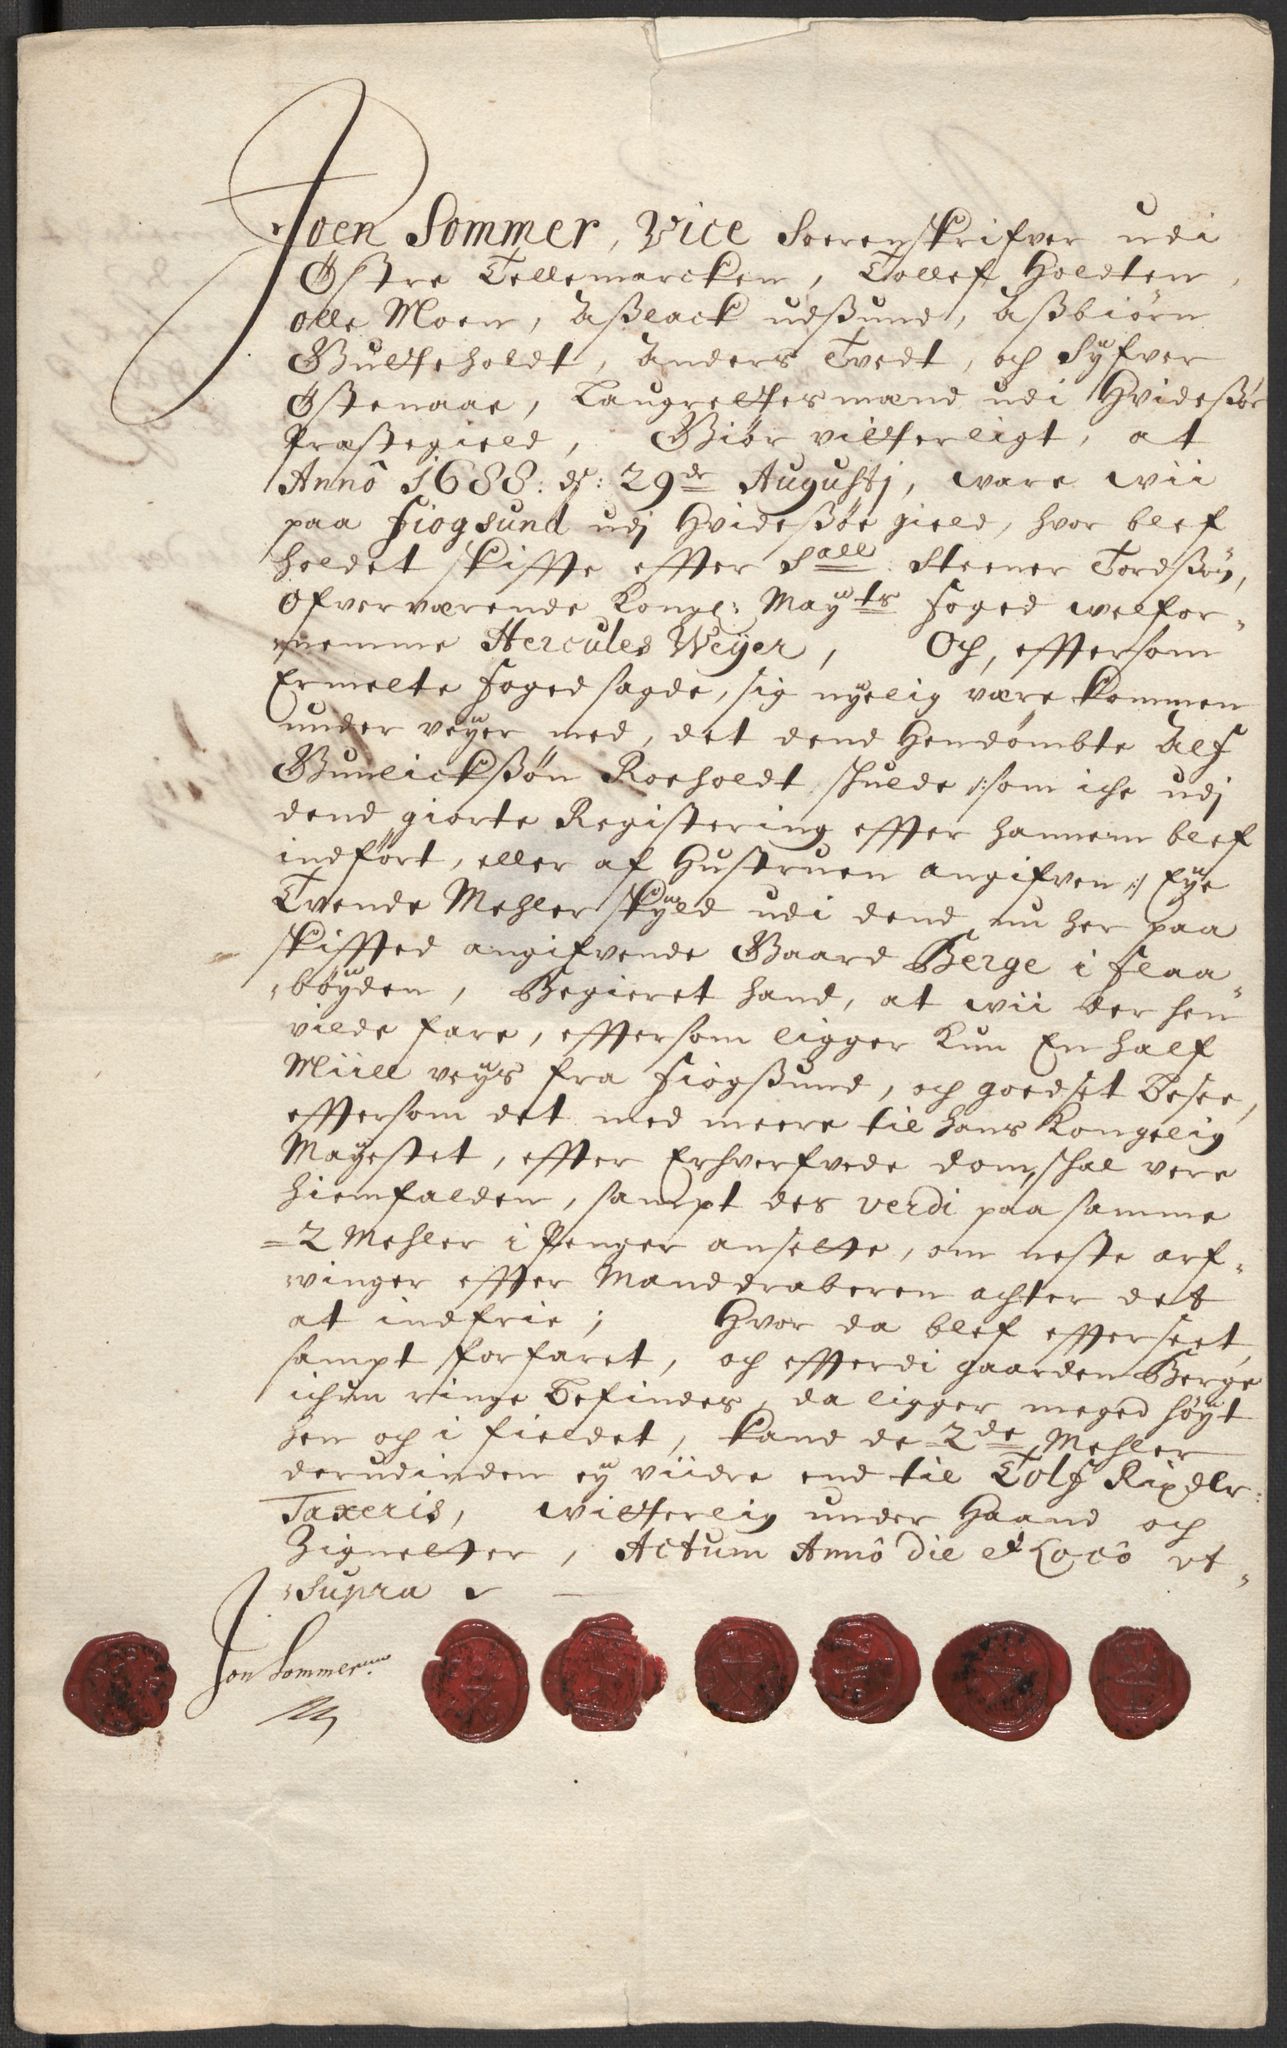 Joen Sommer, Vice Soerenskrifver udi
Østre Tellemarcken, Tollef Holdten,
Olle Moen, Aßlack udßund, Aßbiørn
Gulteholdt, Anders Tvedt, och Syfver
Østenaae, Laugrettesmænd udi Hvideßøe
Præstegield, Giør vitterligt, at
Annô 1688: d: 29de Augustj, ware wii
paa Fiogsund udj Hvideßøe gield, hvor blef
holdet skiffte effter Sall: Steener Tordßøn,
Ofverværende Kongl: Mayts Foged welfor-
nemme Hercules Weyer, Och, efftersom
Ermelte Foged sagde, sig nyelig være kommen
under veyer med, det dend Hendømbte Alf
Gunlickßøn Roeholdt skulde /:som iche udj
dend giorte Registering effter hannem blef
indført, eller af Hustruen angifven:/ Eye
Tvende Mehler skyld udi dend nu her paa
skiffted angifvende Gaard Berge i Flaa-
bøyden, Begieret hand, at wii der hen
vilde fare, efftersom ligger Kun En half
Miill veys fra Fiogßund, och goedset besee,
efftersom det med meere til hans Kongelig
Mayestet, effter Erhverfvede dom, skal vere
hiemfalden, sampt des verdi paa samme
2 Mehler i Penger ansette, om neste arf-
winger effter Manddraberen achter det
at indfrie; Hvor da blef efferseet,
sampt forfaret, och efferdi gaarden Berge
ichun ringe befindes, da ligger meged høyt
hen op i fieldet, kand de 2de Mehler
derudinden ey viidre end til Tolf Rixdlr:
Taxeris, witterlig under Haand och
Zignetter, Actum Annô die et Locô ut-
supra
Jon Sommer